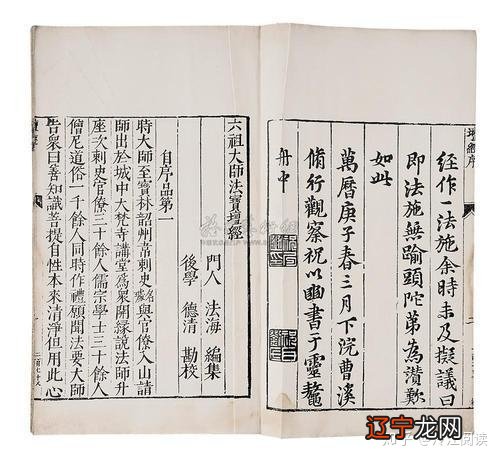 壇經序
經作一法施余時未及擬議曰
即法施無踰頭陀第為讚歎
如此
萬曆庚子春三月下浣曹溪
脩行觀察祝以豳書于靈鰲
舟中
六祖大師法寶壇經
門人 法海 編集
後學 德清 勘校
自序品第一
時大師至寶林韶州韋刺史名璩與官僚入山請
師出於城中大梵寺講堂爲眾開緣說法師升
座次刺史官僚三十餘人儒宗學士三十餘人
僧尼道俗一千餘人同時作禮願聞法要大師
告衆曰善知識菩提自性本來清淨但用此心
辽宁龙网